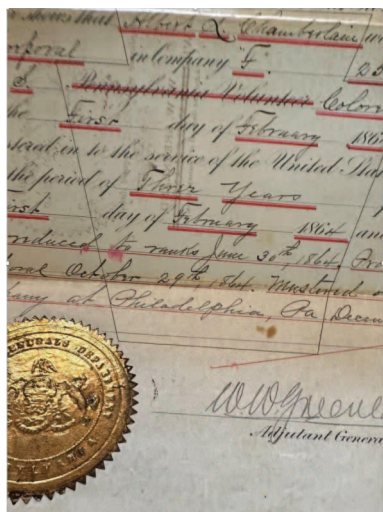 shows that Albert L. Chamberlain
orporal in Company F. 25
S. Pennsylvania Volunteer Colore
the First day of February 1864
stered in to the service of the United Stat
the period of Three Years
irst day of February 1864 and
reduced to ranks June 30th, 1864. Pro
oral October 29th 1864. Mustered o
pany at Philadelphia, Pa Decem
W.W. Greene
Adjutant General